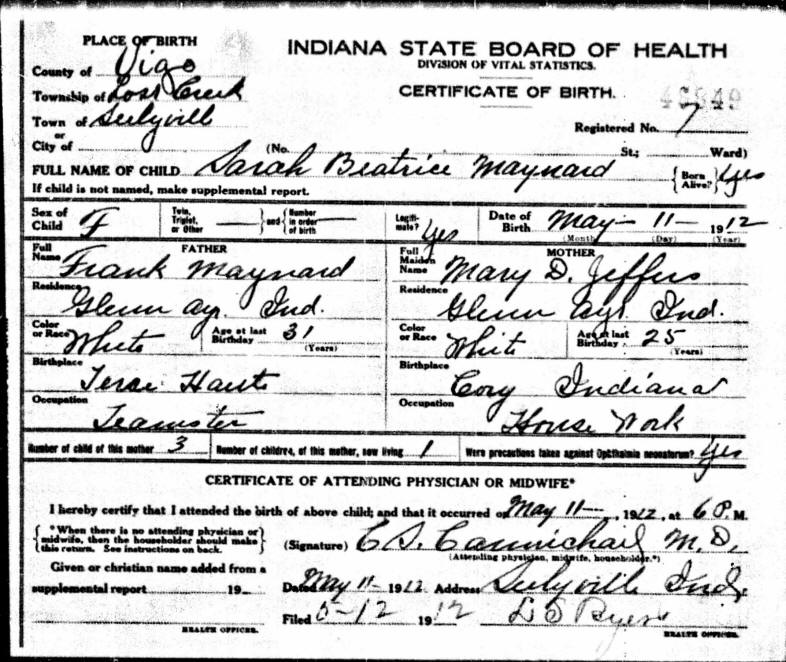 PLACE OF BIRTH
INDIANA STATE BOARD OF HEALTH
DIVISION OF VITAL STATISTICS.
CERTIFICATE OF BIRTH.
46849
County of Vigo
Township of Lost Creek
Town of Seelyville
or
City of
Registered No. 7
(No. St.; Ward)
FULL NAME OF CHILD Sarah Beatrice Maynard {Born Alive?} Yes
If child is not named, make supplemental report.
Sex of Child F Twin, Triplet, or Other and Number in order of birth Legiti-mate? Yes Date of Birth May 11 1912
(Month) (Day) (Year)
FATHER
Full Name Frank Maynard
Residence Glenn Ayr. Ind.
Color or Race White Age at last Birthday 31 (Years)
Birthplace Terre Haute
Occupation Teamster
MOTHER
Full Maiden Name Mary D. Jeffers
Residence Glenn Ayr. Ind.
Color or Race White Age at last Birthday 25 (Years)
Birthplace Cory Indiana
Occupation House Work
Number of child of this mother 3 Number of children, of this mother, now living 1 Were precautions taken against Ophthalmia neonatorum? Yes
CERTIFICATE OF ATTENDING PHYSICIAN OR MIDWIFE*
I hereby certify that I attended the birth of above child; and that it occurred on May 11 , 1912, at 6 P. M.
{*When there is no attending physician or
midwife, then the householder should make
this return. See instructions on back.}
(Signature) C. S. Carmichael M. D.
(Attending physician, midwife, householder.*)
Given or christian name added from a
supplemental report 19
HEALTH OFFICER.
Dated May 11 1912 Address Seelyville Ind.
Filed 5-12 1912 L S Byers
HEALTH OFFICER.